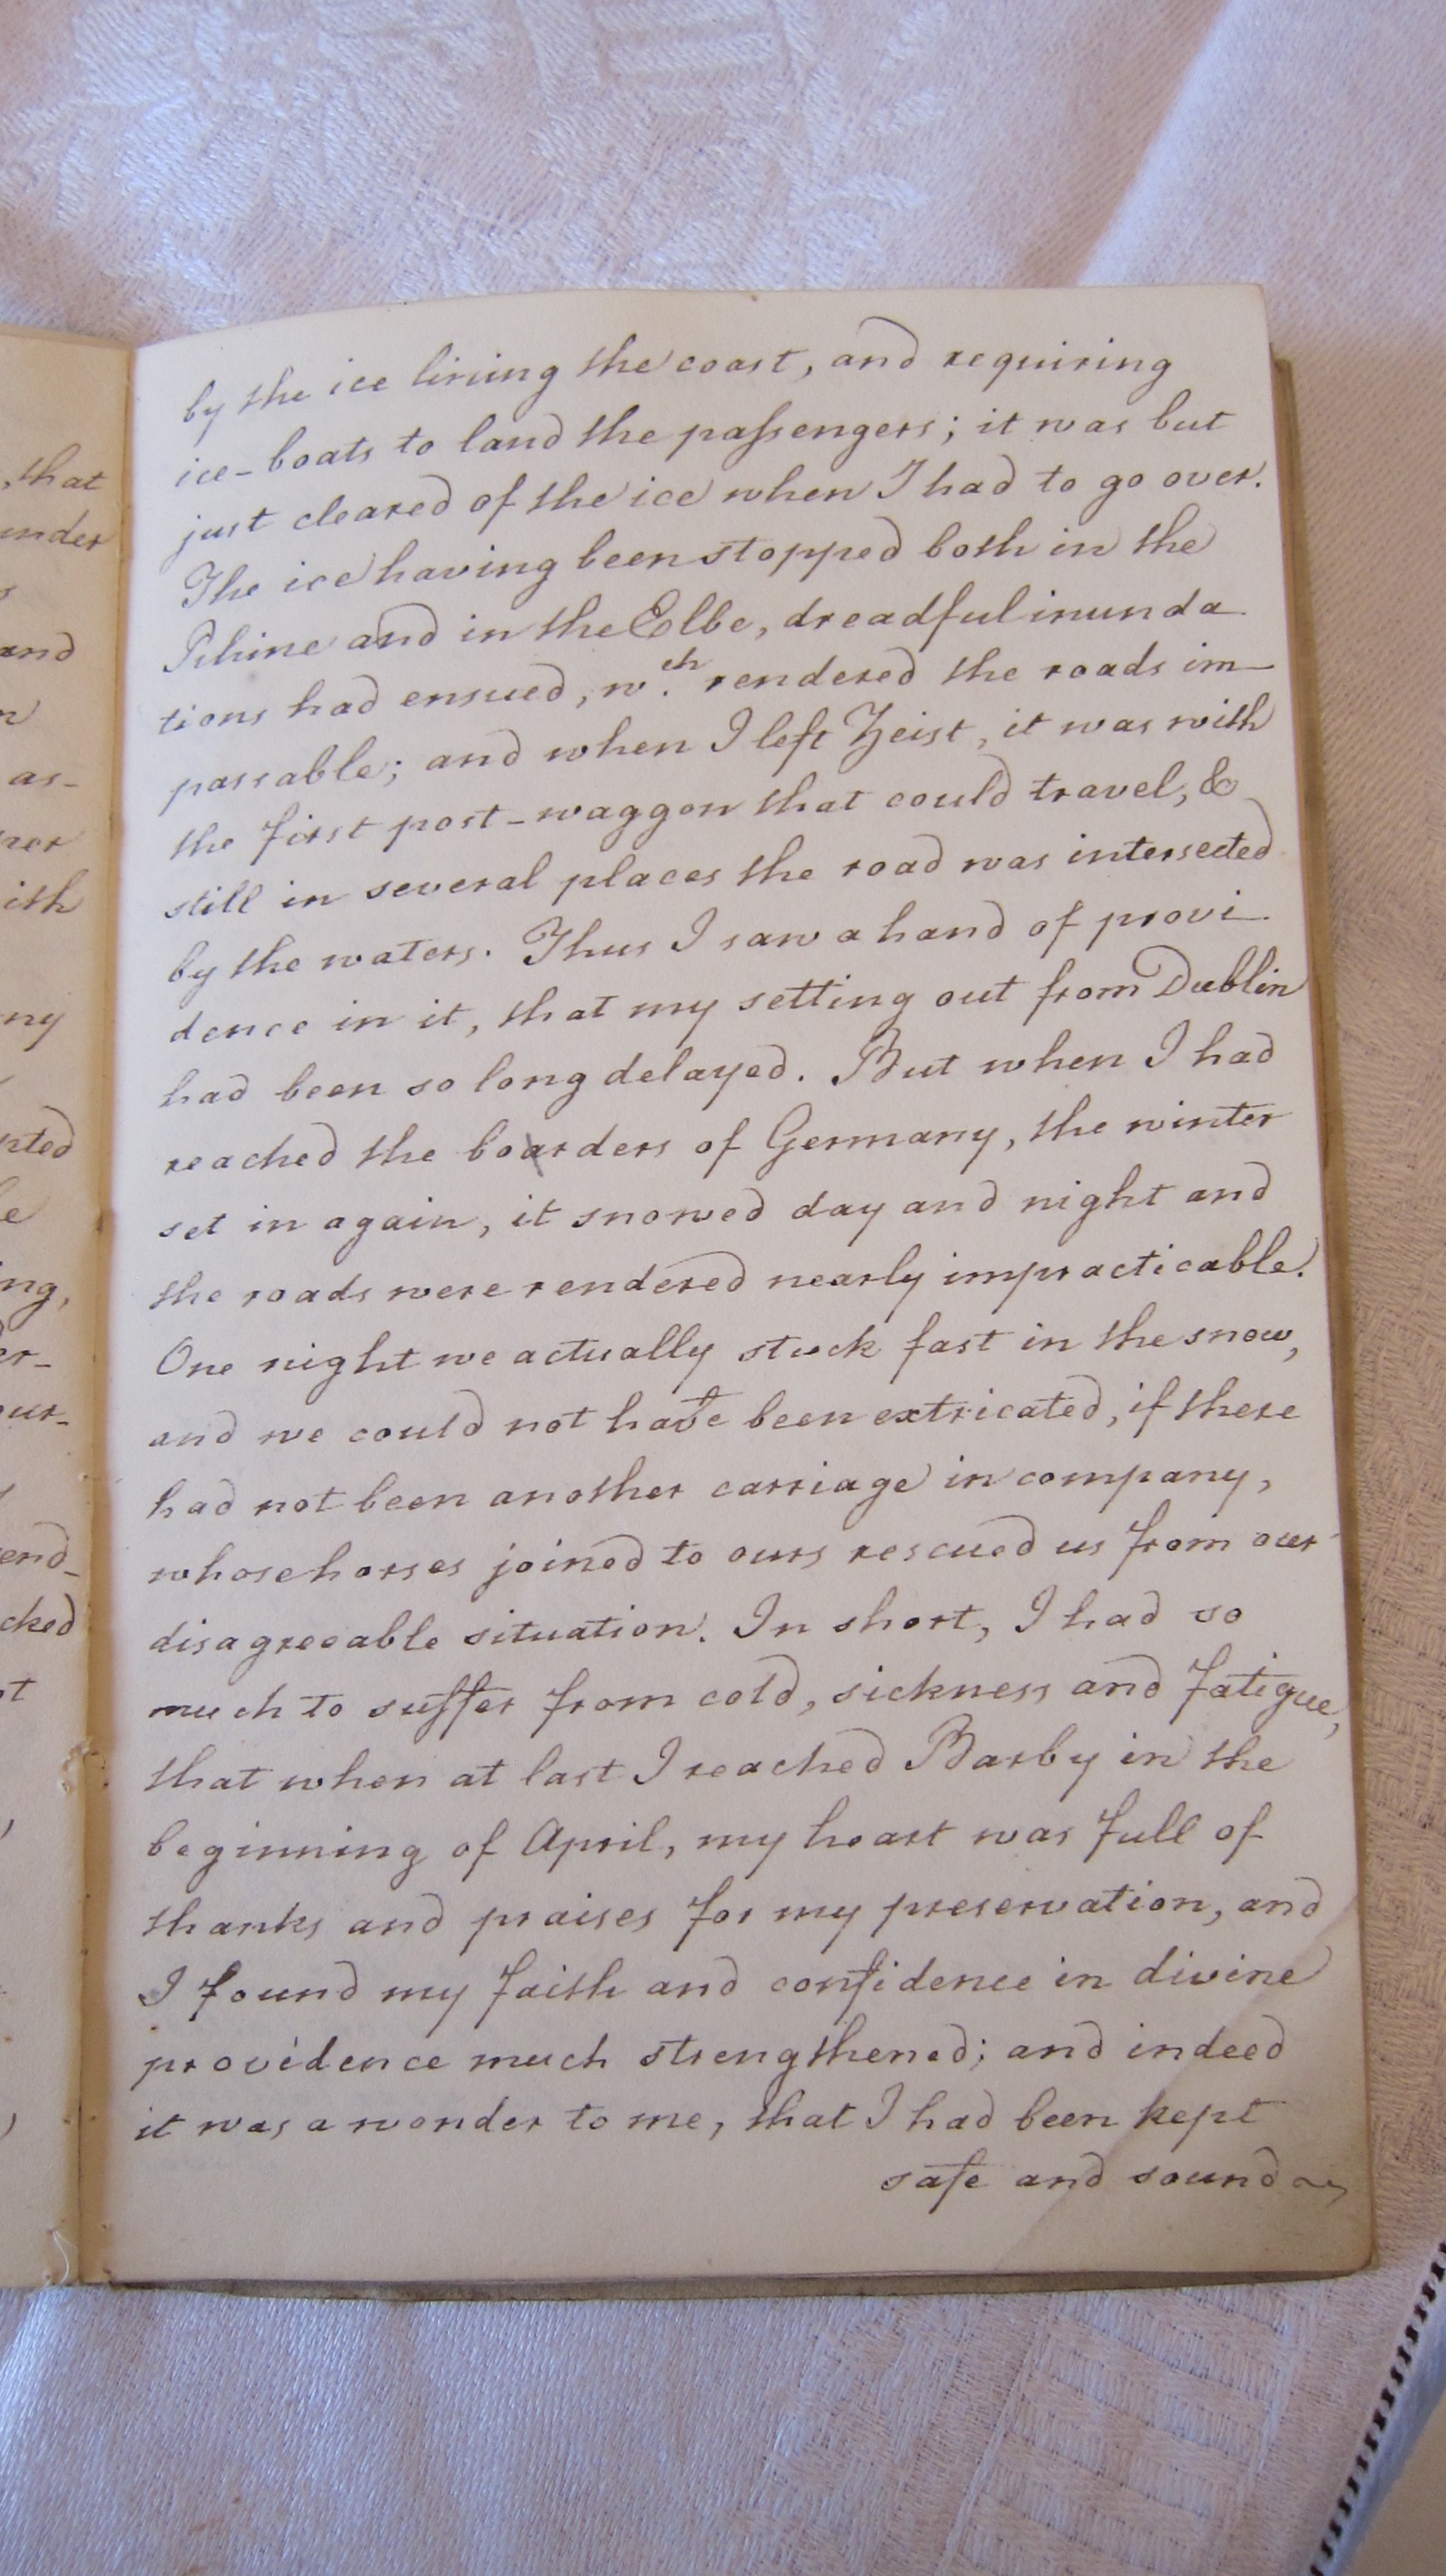 by the ice lining the coast, and requiring
ice-boats to land the paſsengers; it was but
just cleared of the ice when I had to go over.
The ice having been stopped both in the
Rhine and in the Elbe, dreadful inunda
tions had ensued, w.ch rendered the roads im-
passable; and when I left Zeist, it was with
the first post-waggon that could travel, &
still in several places the road was intersected
by the waters. Thus I saw a hand of provi-
dence in it, that my setting out from Dublin
had been so long delayed. But when I had
reached the boarders of Germany, the winter
set in again, it snowed day and night and
the roads were rendered nearly impracticable.
One night we actually stuck fast in the snow,
and we could not have been extricated, if there
had not been another carriage in company,
whose horses joined to ours rescued us from our
disagreeable situation. In short, I had so
much to suffer from cold, sickness and fatigue,
that when at last I reached Barby in the
beginning of April, my heart was full of
thanks and praises for my preservation, and
I found my faith and confidence in divine
providence much strengthened; and indeed
it was a wonder to me, that I had been kept
safe and sound
, that
under
and
as-
ith
ny
ing,
er-
our-
end-
cked